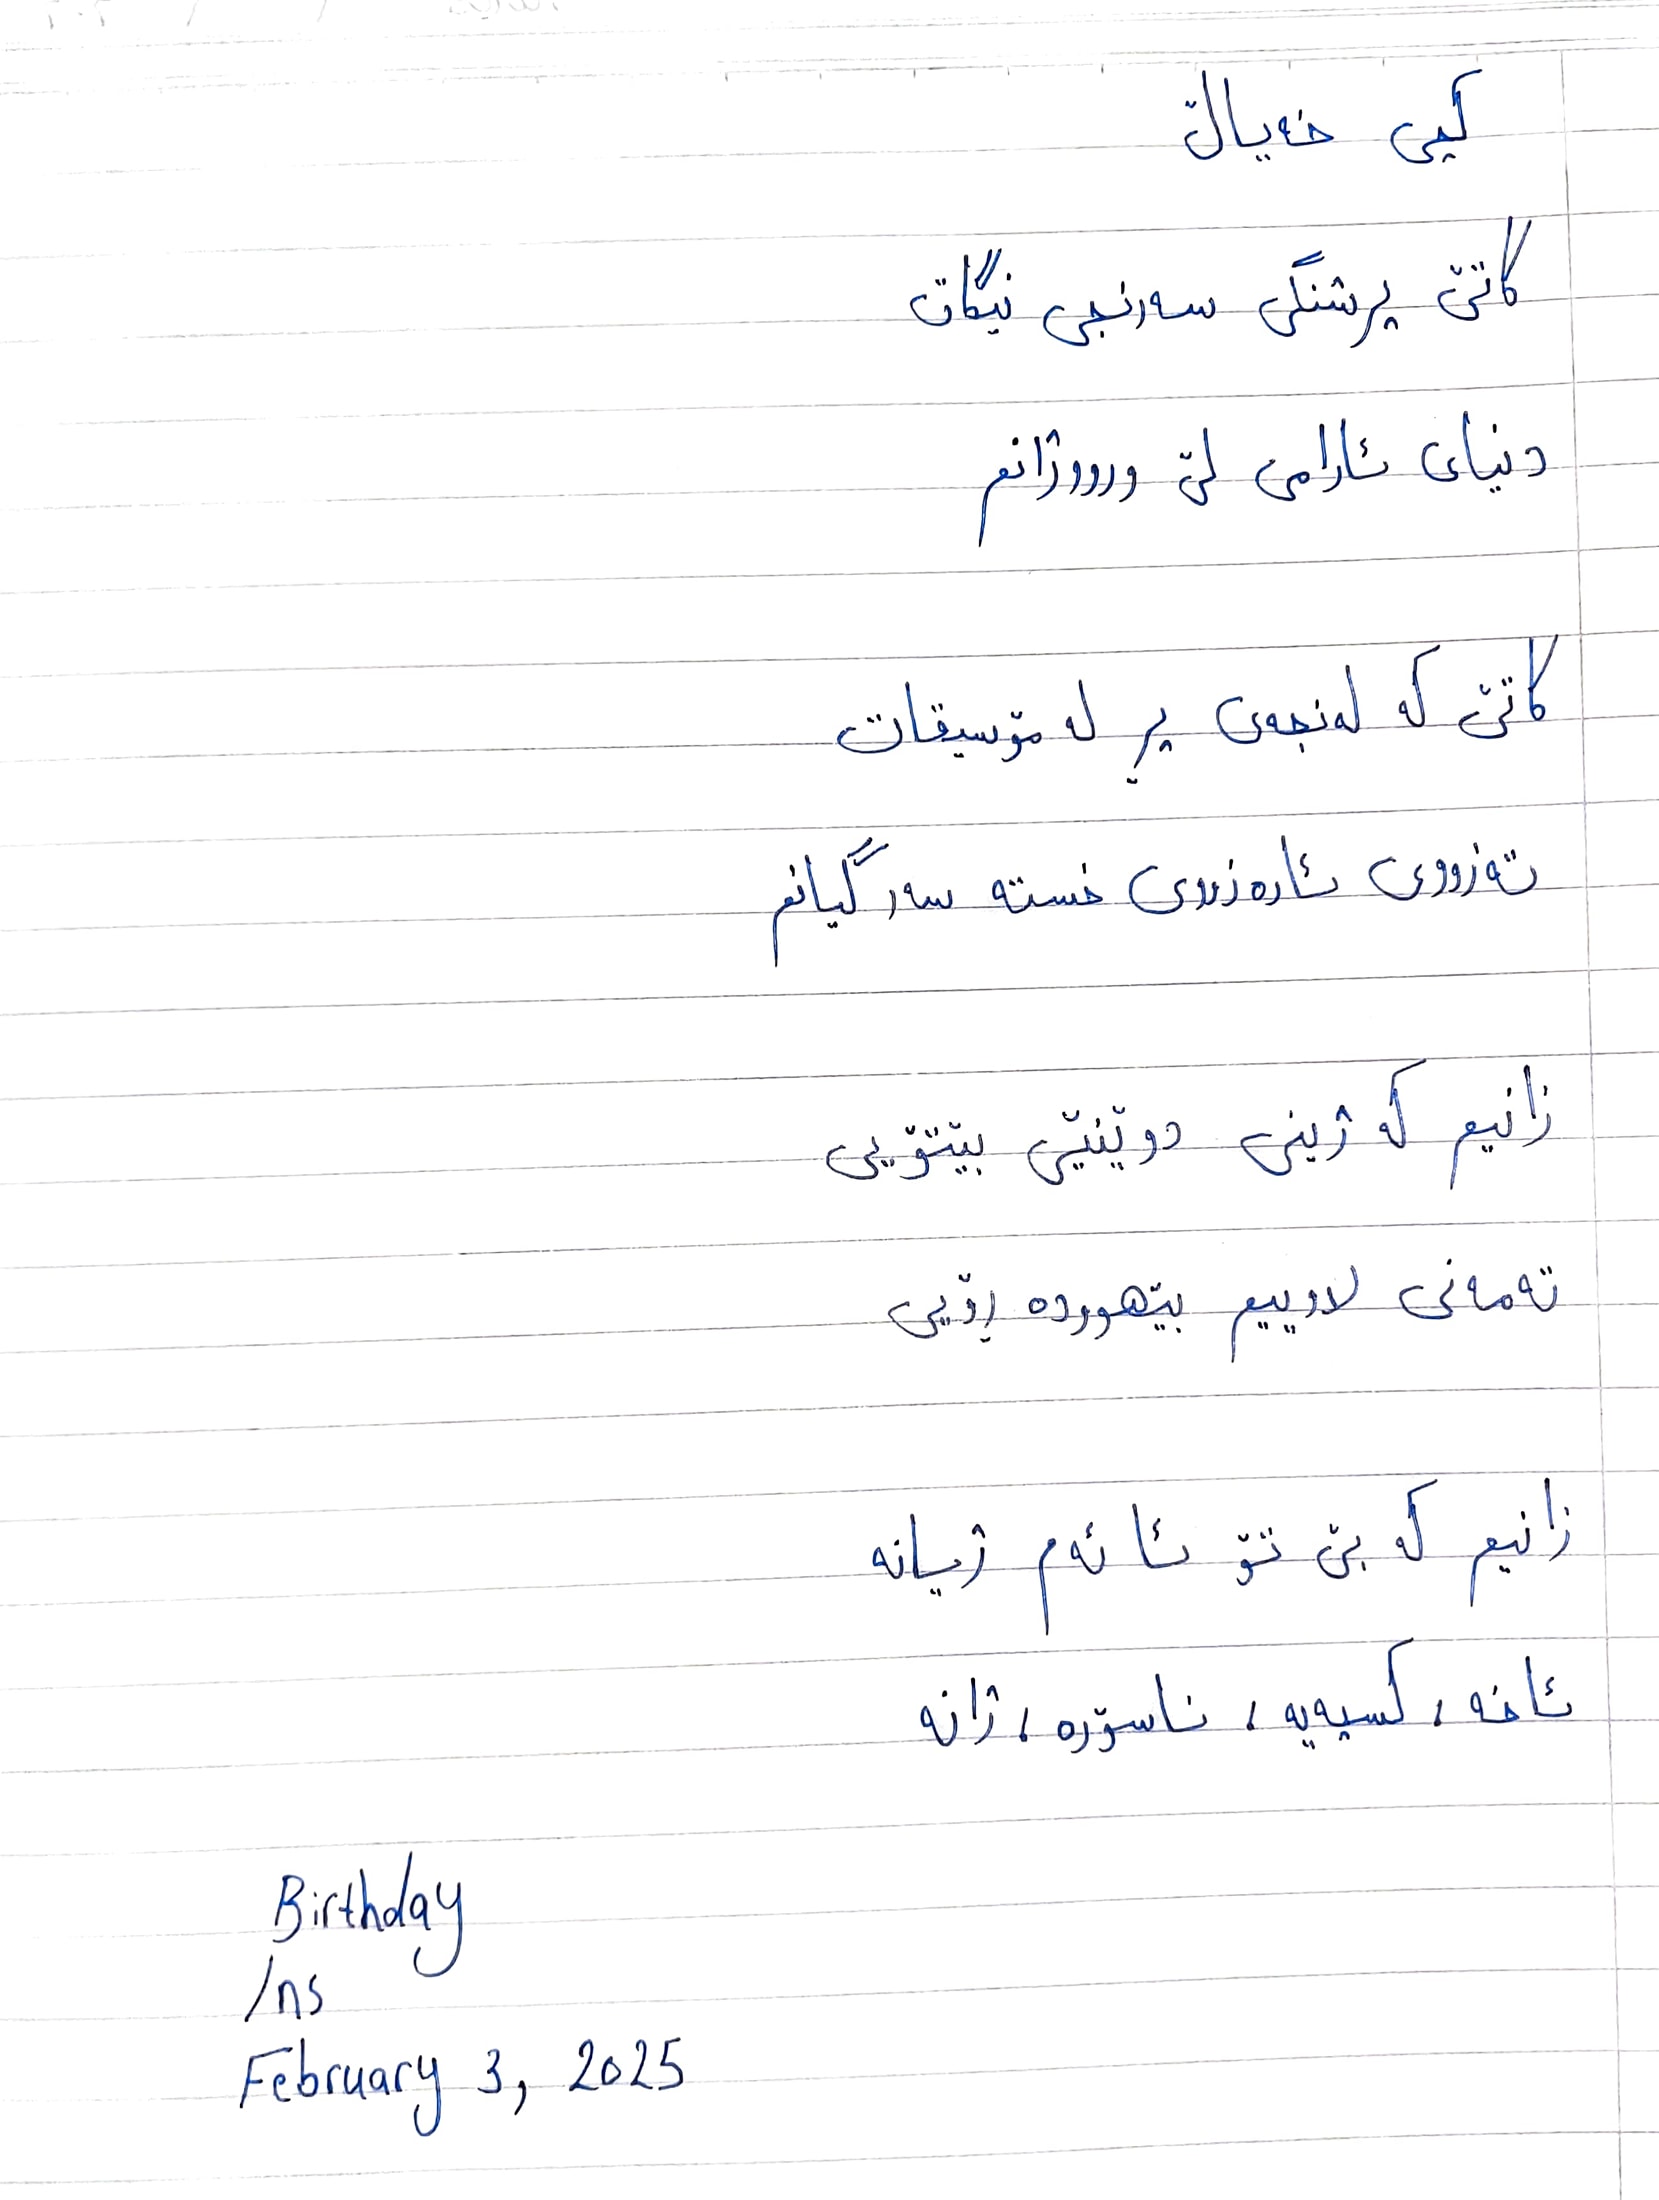 کچی خەیاڵ
کاتێ پرشنگی سەرنجی نیگات
دنیای ئارامی لێ ورووژانم
کاتێ کە لەنجەی پڕ لە مۆسیقات
تەزووی ئارەزووی خستە سەر گیانم
زانیم کە ژینی دوێنێی بێتۆیی
تەمەنی لاوییم بێهوودە ڕۆیی
زانیم کە بێ تۆ ئا ئەم ژیانە
ئاخە، کسپەیە، ناسۆرە، ژانە
Birthday
/ns
February 3, 2025